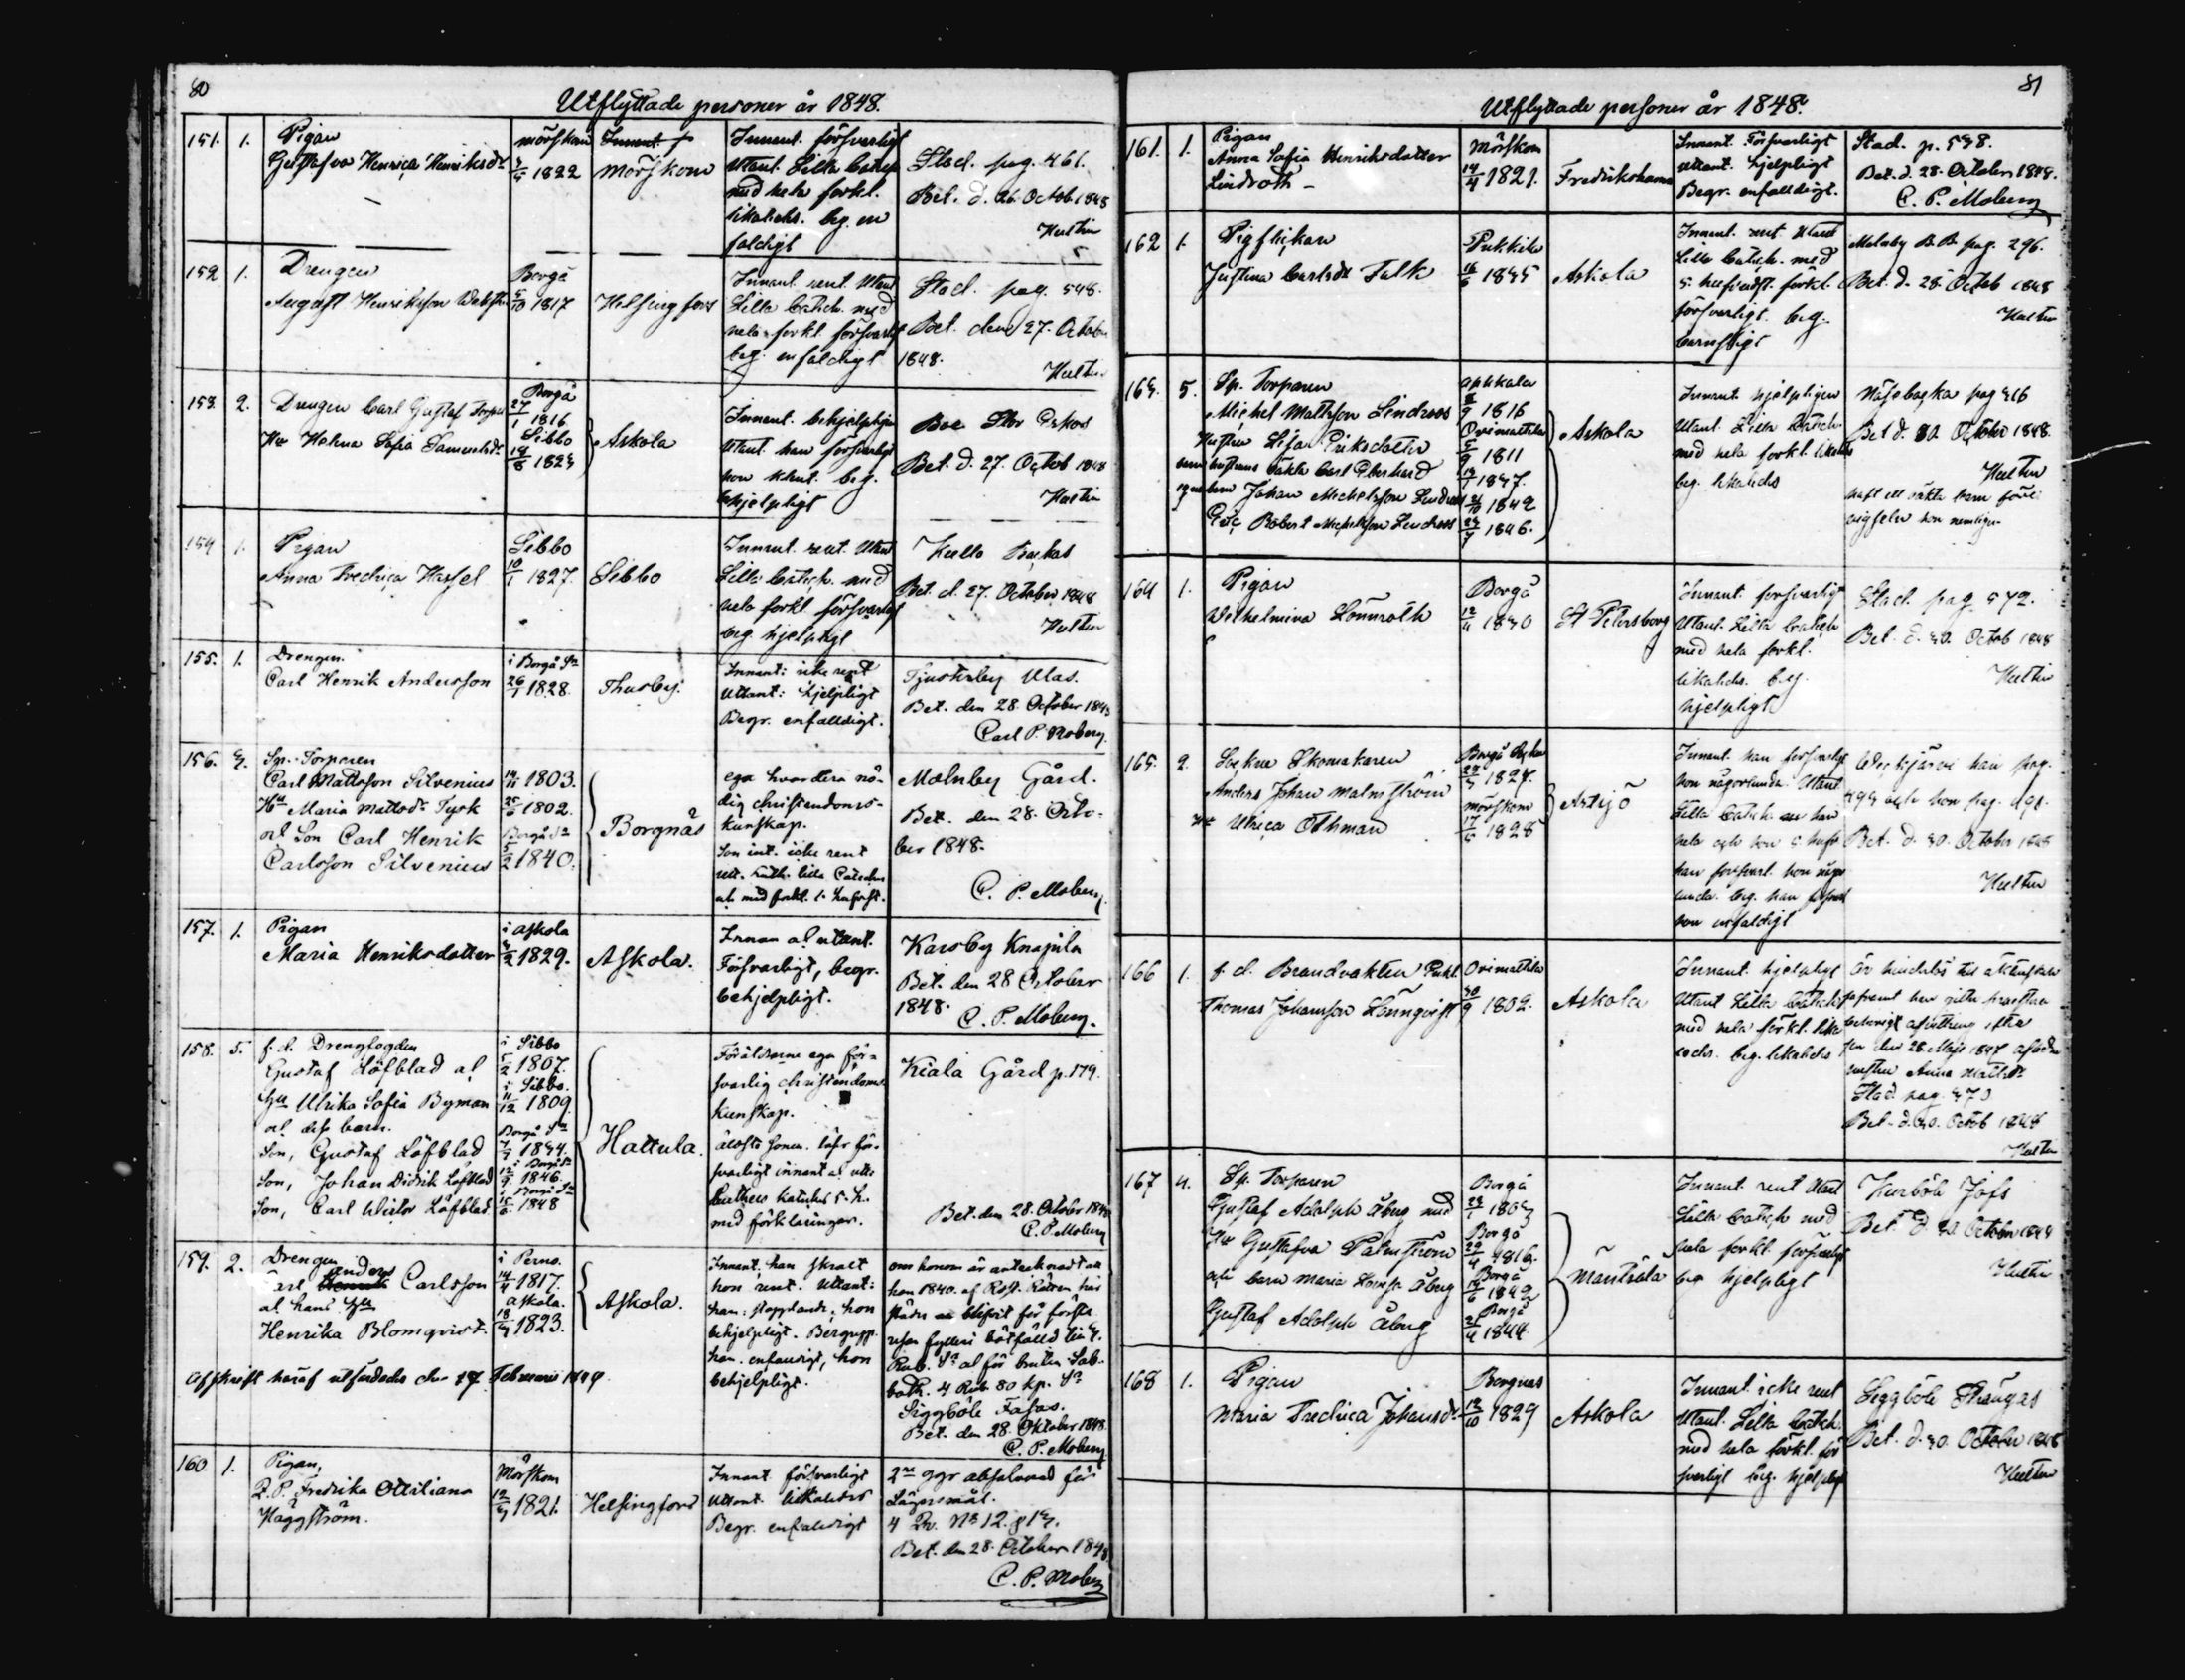 80
Utflyttade personer år 1848.
151. 1. Pigan
Gustafva Henrica Henriksdr
Mörskom
1822
Mörskom
Innant. försvarligt
Utant. Lilla Catech
med hela förkl.
likaledes. beg. en
faldigt
Stad. pag. 461.
Bet. d. 26. Octob. 1848
Hultin
152 1. Drengen
August Henriksson
Borgå
5/10 1817
Helsingfors
Innant. rent. Utant
Lilla Catech. med
hela förkl. försvarligt
beg. enfaldigt
Stad. pag. 548.
Bet. den 27. Octob
1848.
Hultin
153. 2. Drengen Carl Gustaf
Hu Helena Sofia Samuelsdr
Borgå
27/1 1816
Sibbo
18/8 1823
Askola
Innant. behjelpligen
Utant. han försvarligt
hon klent. beg.
behjelpligt
Boe Stor Eskos
Bet. d. 27. Octob 1848
Hultin
154 1. Pigan
Anna Fredrica Hassel
Sibbo
10/1 1827.
Sibbo
Innant. rent. Utant
Lilla Catech. med
hela förkl. försvarligt
beg. hjelpligt
Kullo Backas
Bet. d. 27. October 1848
Hultin
155. 1. Drengen.
Carl Henrik Andersson
i Borgå Sn
26/1 1828.
Thusby.
Innant: icke rent
Uttant: hjelpligt
Begr. enfalldigt.
Tjusterby Ulas.
Bet. den 28. October 1848
Carl P. Moberg.
156. 3. Sp. Torparen
Carl Mattsson Silvenius
Hu Maria Mattsdr Tysk
och Son Carl Henrik
Carlsson Silvenius
1803.
1802.
Borgå Sn
1840.
Borgnäs
ega hvardera nö-
dig christendoms-
kunskap.
Son int. icke rent
utt. Luth. lilla Cateches
Molnby Gård.
Bet. den 28. Octo-
ber 1848.
C. P. Moberg
157. 1. Pigan
Maria Henriksdotter
i Askola
1829.
Askola.
Innan al utant.
Försvarligt, begr.
behjelpligt.
Karsby Knapila
Bet. den 28 October
1848.
C. P. Moberg.
158. 5. f. d. Drengfogden
Gustaf Löfblad al
Hu Ulrika Sofia Byman
al. dess barn.
Son, Gustaf Löfblad
Son, Johan Didrik Löfblad
Son, Carl Victor Löfblad.
i Sibbo
5/2 1807.
i Sibbo.
11/12 1809.
Borgå Sn
1834.
i Borgå Sn
12/9 1846.
i Borgå Sn
1848
Hattula.
Föräldrarne ega för-
svarlig christendoms
kunskap.
äldste Sonen. läser för-
svarligt innant al utt:
Luthers katekes 5. h.
med förklaringar.
Kiala Gård p. 179.
Bet. den 28. October 1848
C. P. Moberg
159. 2. Drengen
Carl Anders Carlsson
al hans Hu
Henrika Blomqvist.
Afskrift häraf utfärdades den 17 Februari 1849
i Perno.
1817.
Askola.
1823.
Askola.
Innant. han skralt
hon rent. Uttant:
han: stapplande, hon
behjelpligt. Begrepp.
han. enfaldigt, hon
behjelpligt.
om honom är antecknadt att
han 1840. af Råst. Rätten här
städes blifvit för första
resan fylleri bötfälld till 3.
Rub. Sr al för bruten Sab-
bath. 4 Rub. 80 kp. Sr
Siggböle Fasas.
Bet. den 28. Oktober 1848.
C. P. Moberg
160. 1. Pigan,
Q. P. Fredrika Ottiliana
Häggström.
Mörskom
12/3 1821.
Helsingfors
Innant försvarligt
Uttant. likaledes
Begr. enfaldigt
2ne ggr absolverad för
Lägersmål.
4 Qv. No 12. p 13.
Bet. den 28. October 1848
C. P. Moberg
81
Utflyttade personer år 1848.
161. 1. Pigan
Anna Sofia Henriksdotter
Lindroth -
Mörskom
14/4 1821.
Fredrikshamn
Innant. Försvarligt
Uttant. hjelpligt
Begr. enfalldigt.
Stad. p. 538.
Bet. d. 28. October 1848.
C. P. Moberg
162 1. Pigflickan
Justina Carlsdr Falk
Pukkila
16/6 1835
Askola
Innant. rent Utant
Lilla Catech. med
5. hufvudst. förkl.
försvarligt. beg.
barnsligt
Molnby B. B. pag. 296.
Bet. d. 28. Octob 1848
Hultin
163. 5. Sp. Torparen
Michel Mattsson Lindroos
Hustru Lisa Eriksdotter
Carl Eberhard
Johan Michelsson Lindroos
Eric Robert Michelsson Lindroos
1816
Orimattila
5/9 1811
1837.
1842
1846.
Askola
Innant. hjelpligen
Utant. Lilla Catech.
med hela förkl. likaledes
beg. likaledes
pag 316
Bet d. 30. October 1848.
Hultin
haft ett oäkta barn före
vigseln
164 1. Pigan
Wilhelmina Lönnroth
Borgå
1830
St Petersborg
Innant. försvarligt
Utant. Lilla Catech
med hela förkl.
likaledes. beg.
hjelpligt
Stad. pag 572.
Bet. d. 30. Octob 1848
Hultin
165. 2. Sockne Skomakaren
Anders Johan Malmström
Hu Ulrica Othman
Borgå Sockn
1827.
Mörskom
17/6 1828
Artsjö
Innant. han försvarligt
hon någorlunda. Utant
Lilla Catech. han
hela och hon 5. hufv
han försvarl. hon någor
lunda. beg. han försvarl
hon enfaldigt
Weckjärvi han pag.
493 och hon pag. 491.
Bet. d. 30. October 1848
Hultin
166 1. f. d. Brandvakten
Thomas Johansson Lönnqvist
Orimattila
30/9 1802.
Askola
Innant. hjelpligt
Utant Lilla Catech
med hela förkl. lika
ledes. beg. likaledes
är hinderlös till äktenskap
den 28. Maji 1847 aflidna
hustru Anna Mattsdr
Stad pag. 370
Bet. d. 30. Octob 1848
Hultin
167 4. Sp. Torparen
Gustaf Adolph Åberg med
Hu Gustafva Palmström
och barn Maria Åberg
Gustaf Adolph Åberg
Borgå
1803
Borgå
1816.
Borgå
1842
Borgå
1844.
Mäntsälä
Innant. rent Utant
Lilla Catech med
hela förkl. försvarligt
beg hjelpligt
Kurböle Jofs
Bet. d. 30. October 1848
Hultin
168 1. Pigan
Maria Fredrica Johansdr
Borgnäs
12/10 1829
Askola
Innant. icke rent
Utant. Lilla Catech.
med hela förkl. för
svarligt beg. hjelpligt
Seggböle Strångas
Bet. d. 30. October 1848
Hultin